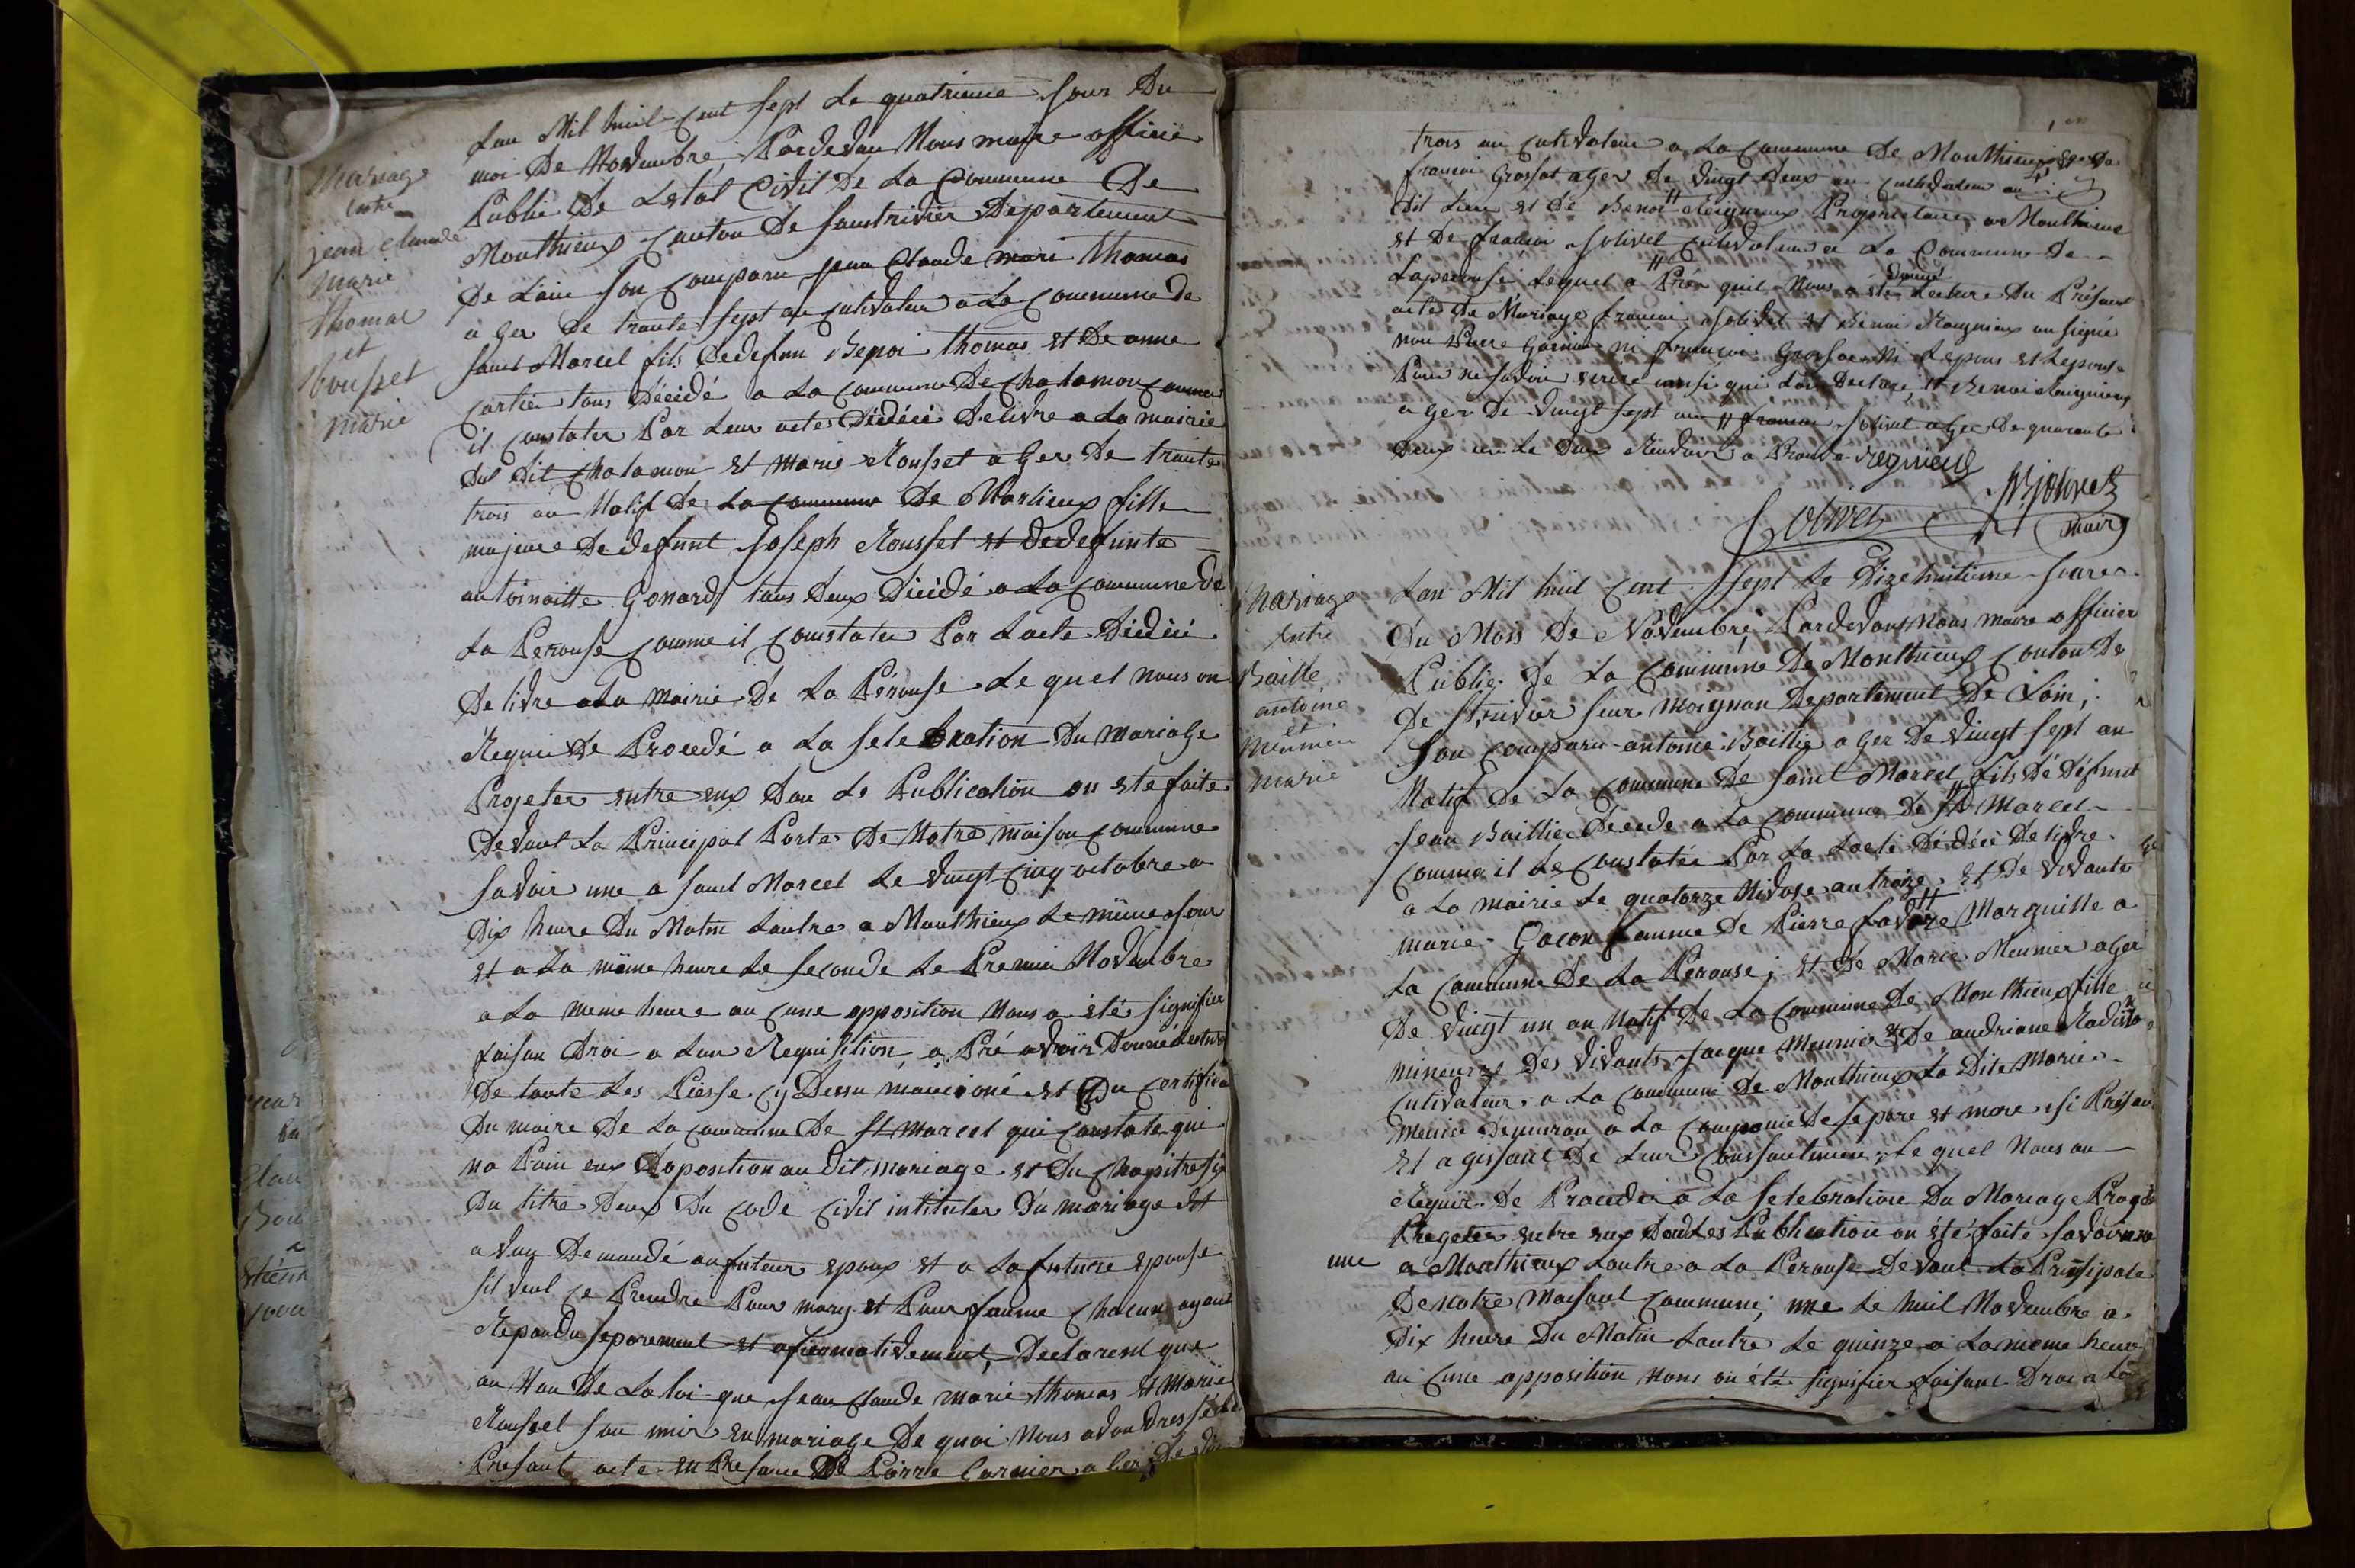 Mariage
entre
jean claude
marie
thomas
et
Rousset
marie
Lan Mil huit Cent Sept Le quatrieme Jour Du
moi De Novembre Pardevan Nous maire officie
Public De Letat Civil De La Commune De
Monthieux Canton De Saintrivier Departement
De Lain Son Comparu jean Claude mari Thomas
a Ger De trante Sept an Cultivateur a La Commune de
Saint Marcel fils Dedefun Benoi thomas et De anne
Cartier tous Décidé a La Commune De Chatamon Comme
il Constater Par Leur actes Dédéci Delivre a La mairie
dul dit Chatamon et Marie Rousset a Ger De trante
trois an Natif De La Commune De Marlieux fille
majeure De defunt Joseph Rousset et Dedefunte
antoinaitte Gonard tous Deux Décidé a La Commune De
La Perouse Comme il Constater Par Lacte Dédéci
De livre a La mairie De La Pérouse Le quel nous on
Requi De Procedé a La Sele bration Du mariage
Projeter entre eux Don Le Publication on ete faite
Devant La Principal Porte De Notre maison Commune
Savoir une a Saint Marcel Le vingt Cinq octobre a
Dix heure Du Matin Lautre a Monthieux Le même Jour
et a La même heure Le Seconde Le Premie Novembre
a La meme heure au Cune opposition Nous a été Signifier
faisan Droi a Leur Requisition a Pré avoir Donne Lecture
De toute Les Piesse Cy Dessu mancioné et Du Certifica
Du maire De La Commune De St Marcel qui Constate qui
na Poin eux Doposition au Dit mariage et Du Chapitre Six
Du titre Deux Du Code Civil intituler Du mariage et
a vuy Demandé au futeur epoux et a La future epouse
Sil veul Ce Prendre Pour mary et Pour famme Chacun ayant
Repondu Separement et afirmativement, Declarent que
au Nau De La Loi que Jean Claude marie thomas et Marie
Rousset Son unir en mariage De quoi Nous avon Dressé
Presant acte en Presance De Pierre Garnier a Ger De
trois an Cultivateur a La Commune De Monthieux et De
francoi Grossat a Ger De vingt Deux an Cultivateur au
dit Lieu et De Benoi Reigneux Propriétaire a Monthieux
et De francoi Jolivet Cultivateur a La Commune De
Laperouse Lequel a Pré quil Nous a été Donné Lecture Du Présant
acte De Mariage francoi Jolivet et Benoi Reigneux on Signé
non Pierre Garnier ni francoi Grossat Ni Lepoux et Lepouse
Pour ne Savoir ecrire insi qui Lon Declaré, et Benoi Reigneux
a Ger De vingt Sept an et francoi Jolivet a Ger De quarante
Deux an Le Deux a Regnieux
Jolivet
maire
Mariage
entre
Baille
antoine
et
Meunier
marie
Lan Mil huit Cent Sept Le Dize huitieme Jour
Du Mois De Novembre Pardevant Nous maire officier
Public De La Commune De Monthieux Conton De
De St trivier Seur Moignan Departement De Lain;
Son Comparu antoine Baillie a Ger De vingt Sept an
Natif De La Commune De Saint Marcel fils De Défunt
Jean Baillie Decede a La Commune De St Marcel
Comme il Le Constatée Par La Lacte Dédéci De livre
a La mairie Le quatorze Nivose an troize et De vivante
marie Gacon famme De Pierre favre Marguille a
La Commune De La Perouse; et De Marie Meunier a Ger
De vingt un an Natif De La Commune De Monthieux fille
mineurze Des vivants Jaque Meunier et De andriane
Cultivateur a La Commune De Monthieux La Dite Marie
Meunier Demuran a La Companie De Se pere et mere si Présau
et agissant De Leur Conssantement, Le quel Nous an
Requir De Proceder a La Selebration Du Mariage
Progeter entre eux Don Les Publication on été faite Savoir
une a Monthieux Lautre a La Perouse Devant La Principale
De Notre Maisont Commune; une Le huit Novembre a
Dix heure Du Matin Lautre Le quinze a La meme heure
au Cune opposition Nous on été Signifier faisant Droi a La